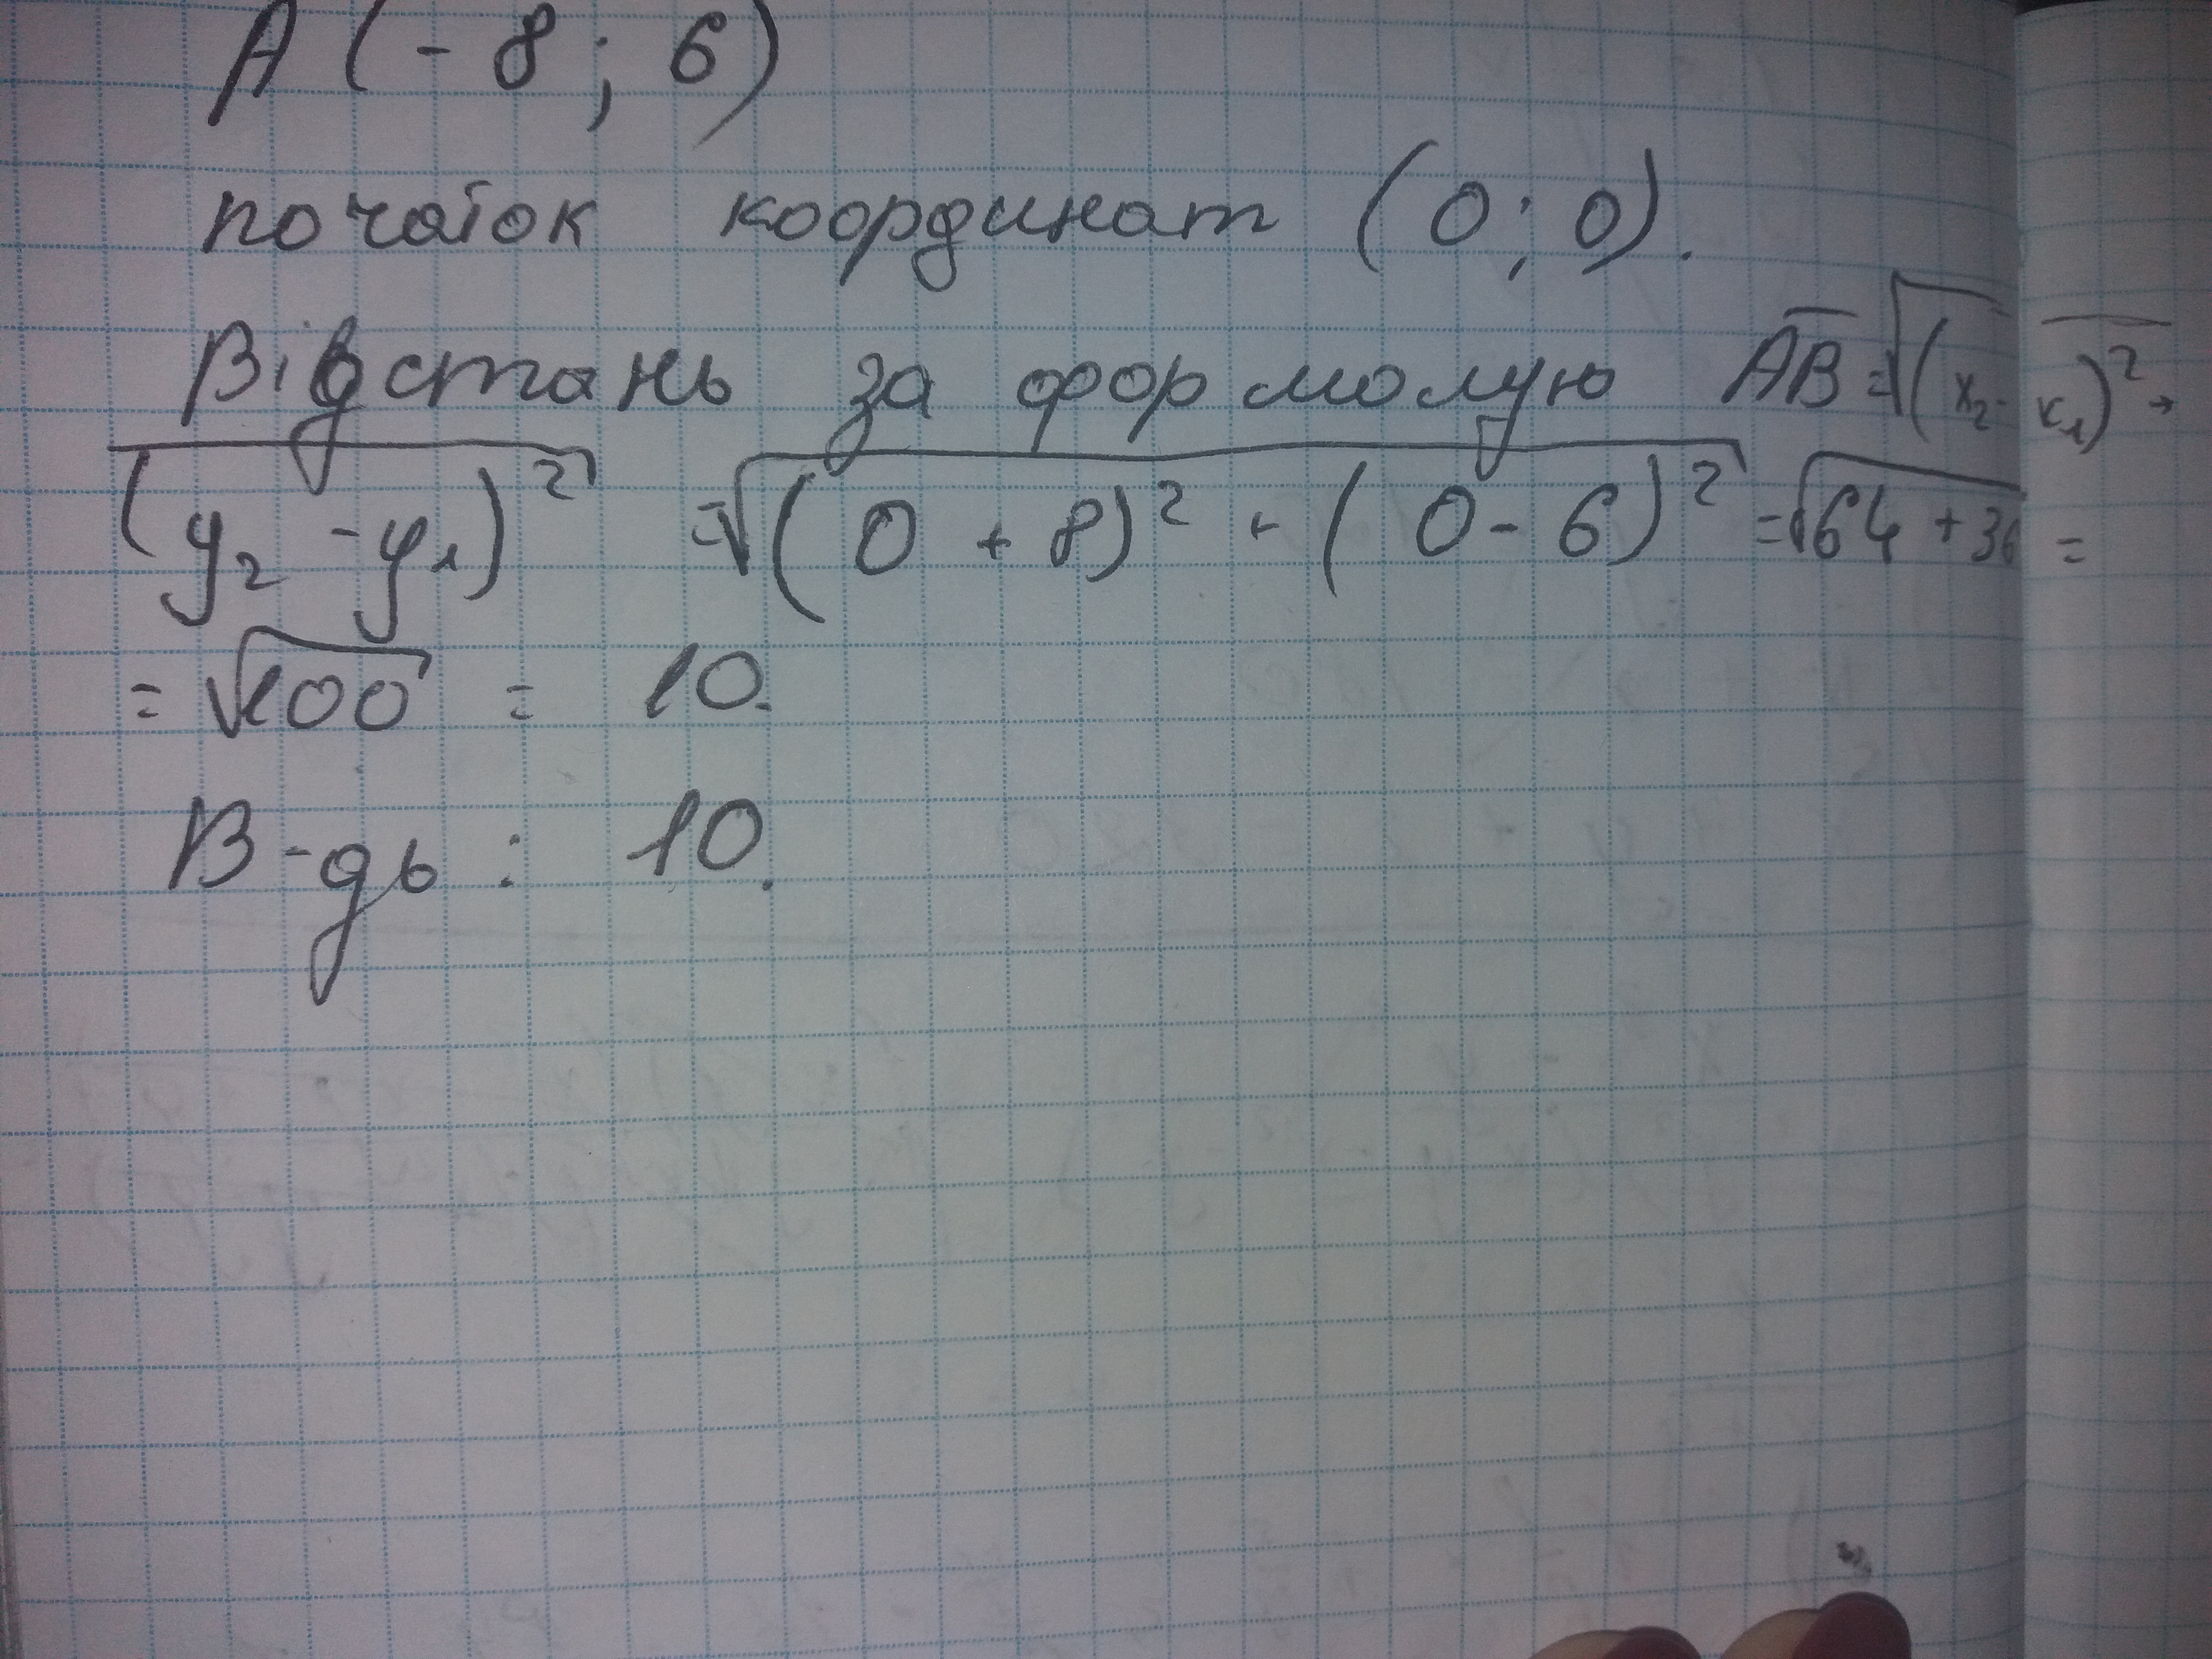 A (-8; 6)
початок координат (0; 0).
Відстань за формолую AB = √(x₂ - x₁)² +
(y₂ - y₁)² = √(0 + 8)² + (0 - 6)² = √64 + 36 =
= √100 = 10.
В-дь: 10.